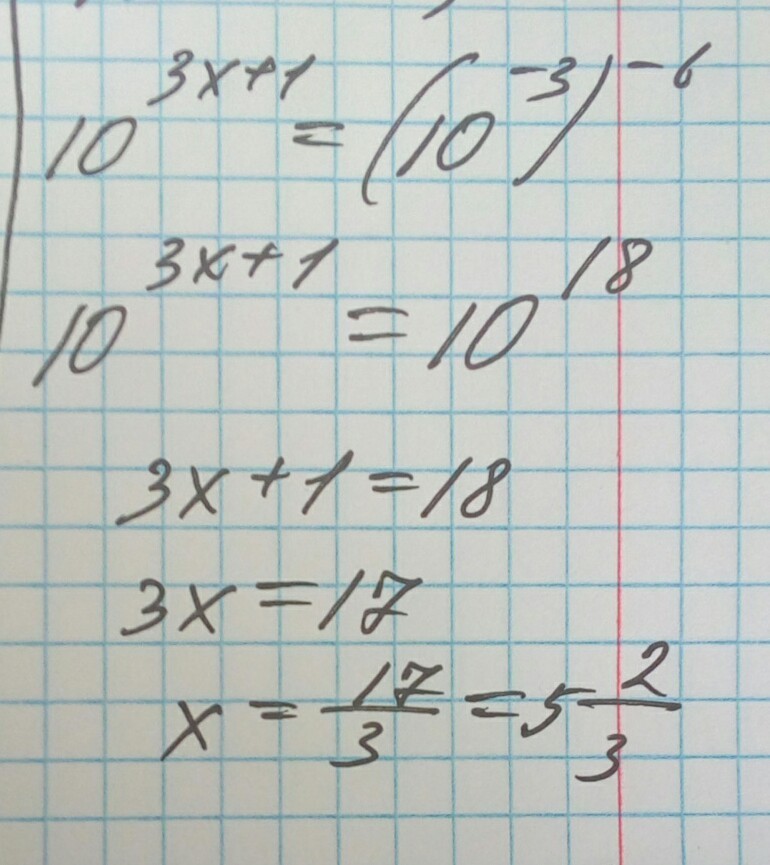 10^{3x+1} = (10^{-3})^{-6}
10^{3x+1} = 10^{18}
3x+1=18
3x=17
x = \frac{17}{3} = 5\frac{2}{3}